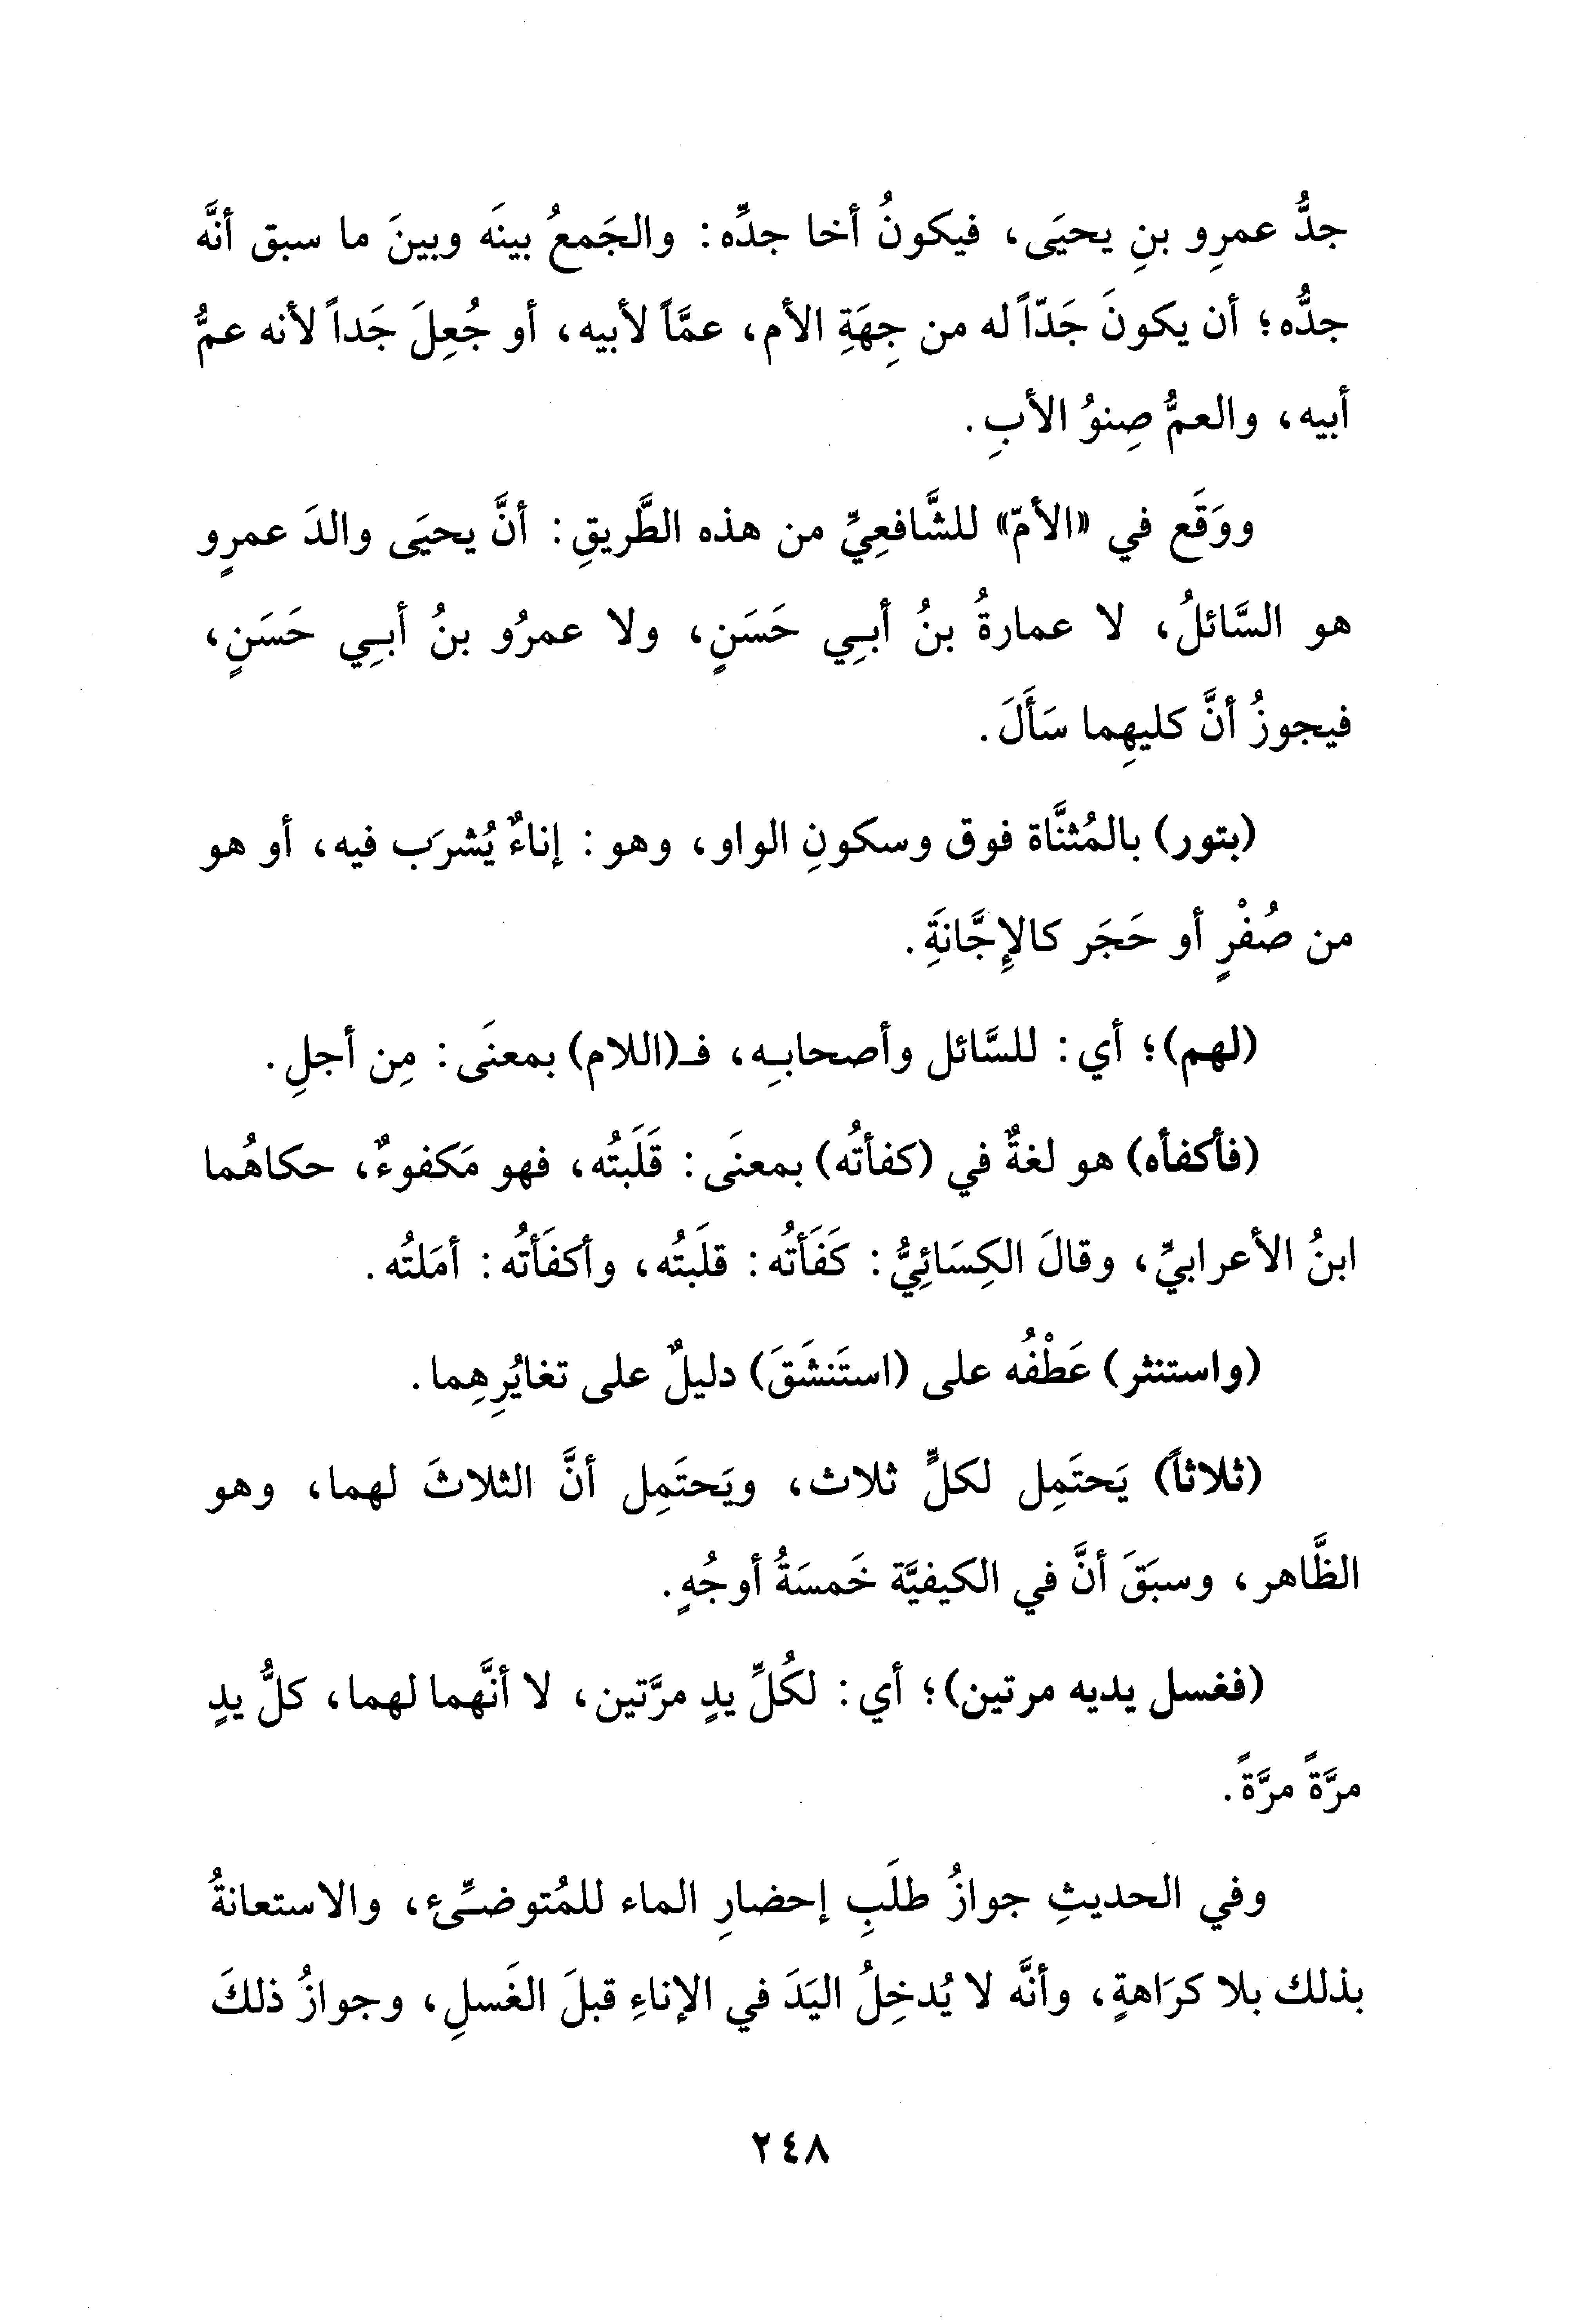 جدُّ عمرِو بنِ يحيَى، فيكونُ أخا جدِّه: والجَمعُ بينَه وبينَ ما سبق أنَّه
جدُّه؛ أن يكونَ جَدّاً له من جِهَةِ الأم، عمَّاً لأبيه، أو جُعِلَ جَداً لأنه عمُّ
أبيه، والعمُّ صِنوُ الأبِ.
ووَقَع في «الأمّ» للشَّافعِيِّ من هذه الطَّريقِ: أنَّ يحيَى والدَ عمرٍو
هو السَّائلُ، لا عمارةُ بنُ أبـِي حَسَنٍ، ولا عمرُو بنُ أبـِي حَسَنٍ،
فيجوزُ أنَّ كليهِما سَأَلَ.
(بتور) بالمُثنَّاة فوق وسكونِ الواو، وهو: إناءٌ يُشرَب فيه، أو هو
من صُفْرٍ أو حَجَر كالإِجَّانَةِ.
(لهم)؛ أي: للسَّائل وأصحابـِه، فـ(اللام) بمعنَى: مِن أجلِ.
(فأكفأه) هو لغةٌ في (كفأتُه) بمعنَى: قَلَبتُه، فهو مَكفوءٌ، حكاهُما
ابنُ الأعرابيِّ، وقالَ الكِسَائِيُّ: كَفَأتُه: قلَبتُه، وأكفَأتُه: أمَلتُه.
(واستنثر) عَطْفُه على (استَنشَقَ) دليلٌ على تغايُرِهِما.
(ثلاثاً) يَحتَمِل لكلٍّ ثلاث، ويَحتَمِل أنَّ الثلاثَ لهما، وهو
الظَّاهر، وسبَقَ أنَّ في الكيفيَّة خَمسَةُ أوجُهٍ.
(فغسل يديه مرتين)؛ أي: لكُلِّ يدٍ مرَّتين، لا أنَّهما لهما، كلُّ يدٍ
مرَّةً مرَّةً.
وفي الحديثِ جوازُ طلَبِ إحضارِ الماء للمُتوضـِّىء، والاستعانةُ
بذلك بلا كرَاهةٍ، وأنَّه لا يُدخِلُ اليَدَ في الإناءِ قبلَ الغَسلِ، وجوازُ ذلكَ
٢٤٨